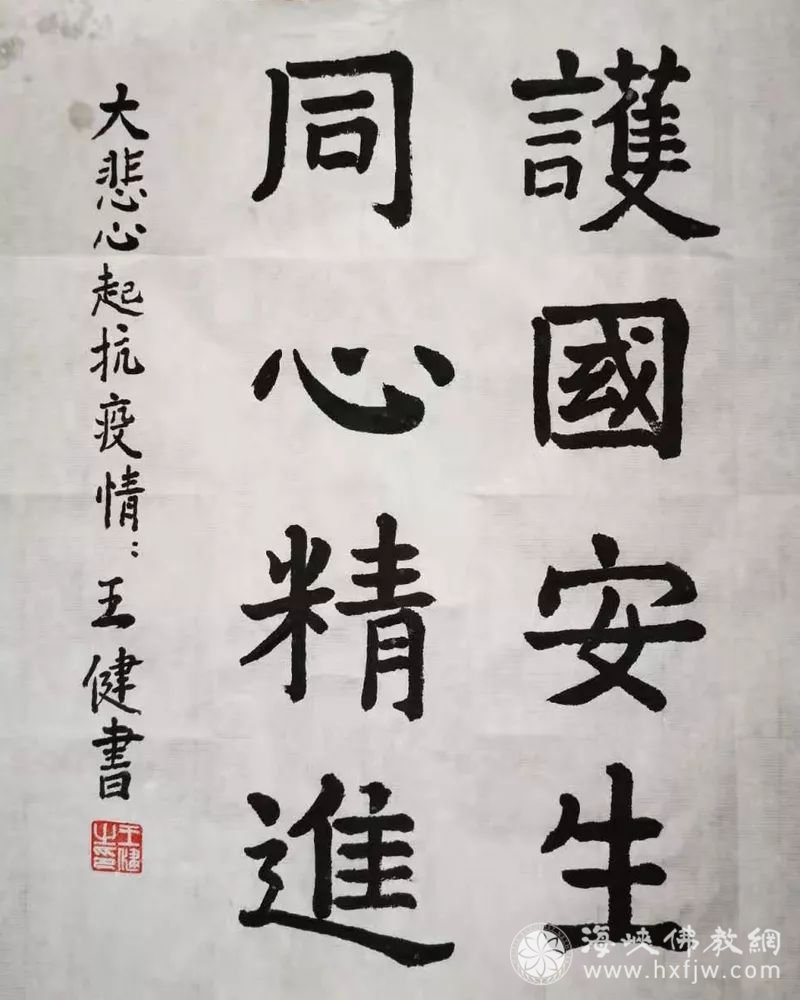 護國安生
同心精進
大悲心起抗疫情：王健書
王健之印
海峽佛教網
www.hxfjw.com